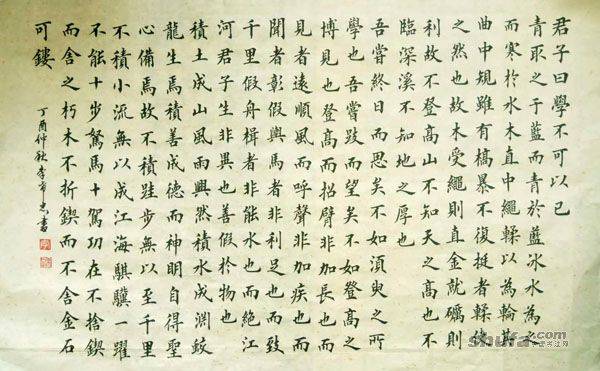 君子曰學不可以已
青取之于藍而青於藍冰水為之
而寒於水木直中繩輮以為輪其
曲中規雖有槁暴不復挺者輮使
之然也故木受繩則直金就礪則
利故不登高山不知天之高也不
臨深溪不知地之厚也
吾嘗終日而思矣不如須臾之所
學也吾嘗跂而望矣不如登高之
博見也登高而招臂非加長也而
見者遠順風而呼聲非加疾也而
聞者彰假輿馬者非利足也而致
千里假舟楫者非能水也而絕江
河君子生非異也善假於物也
積土成山風雨興然積水成淵蛟
龍生焉積善成德而神明自得聖
心備焉故不積跬步無以至千里
不積小流無以成江海騏驥一躍
不能十步駑馬十駕功在不捨鍥
而舍之朽木不折鍥而不舍金石
可鏤
丁酉仲秋李忠書